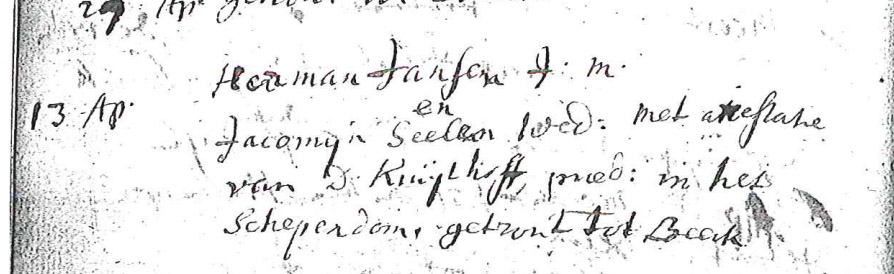 29 Ap getrout
Herman Jansen J: m.
13 Ap. en
Jacomijn Seelen wed: met attestatie
van D. Kuijthoff, praed: in het
Schependom, getrout tot Beeck